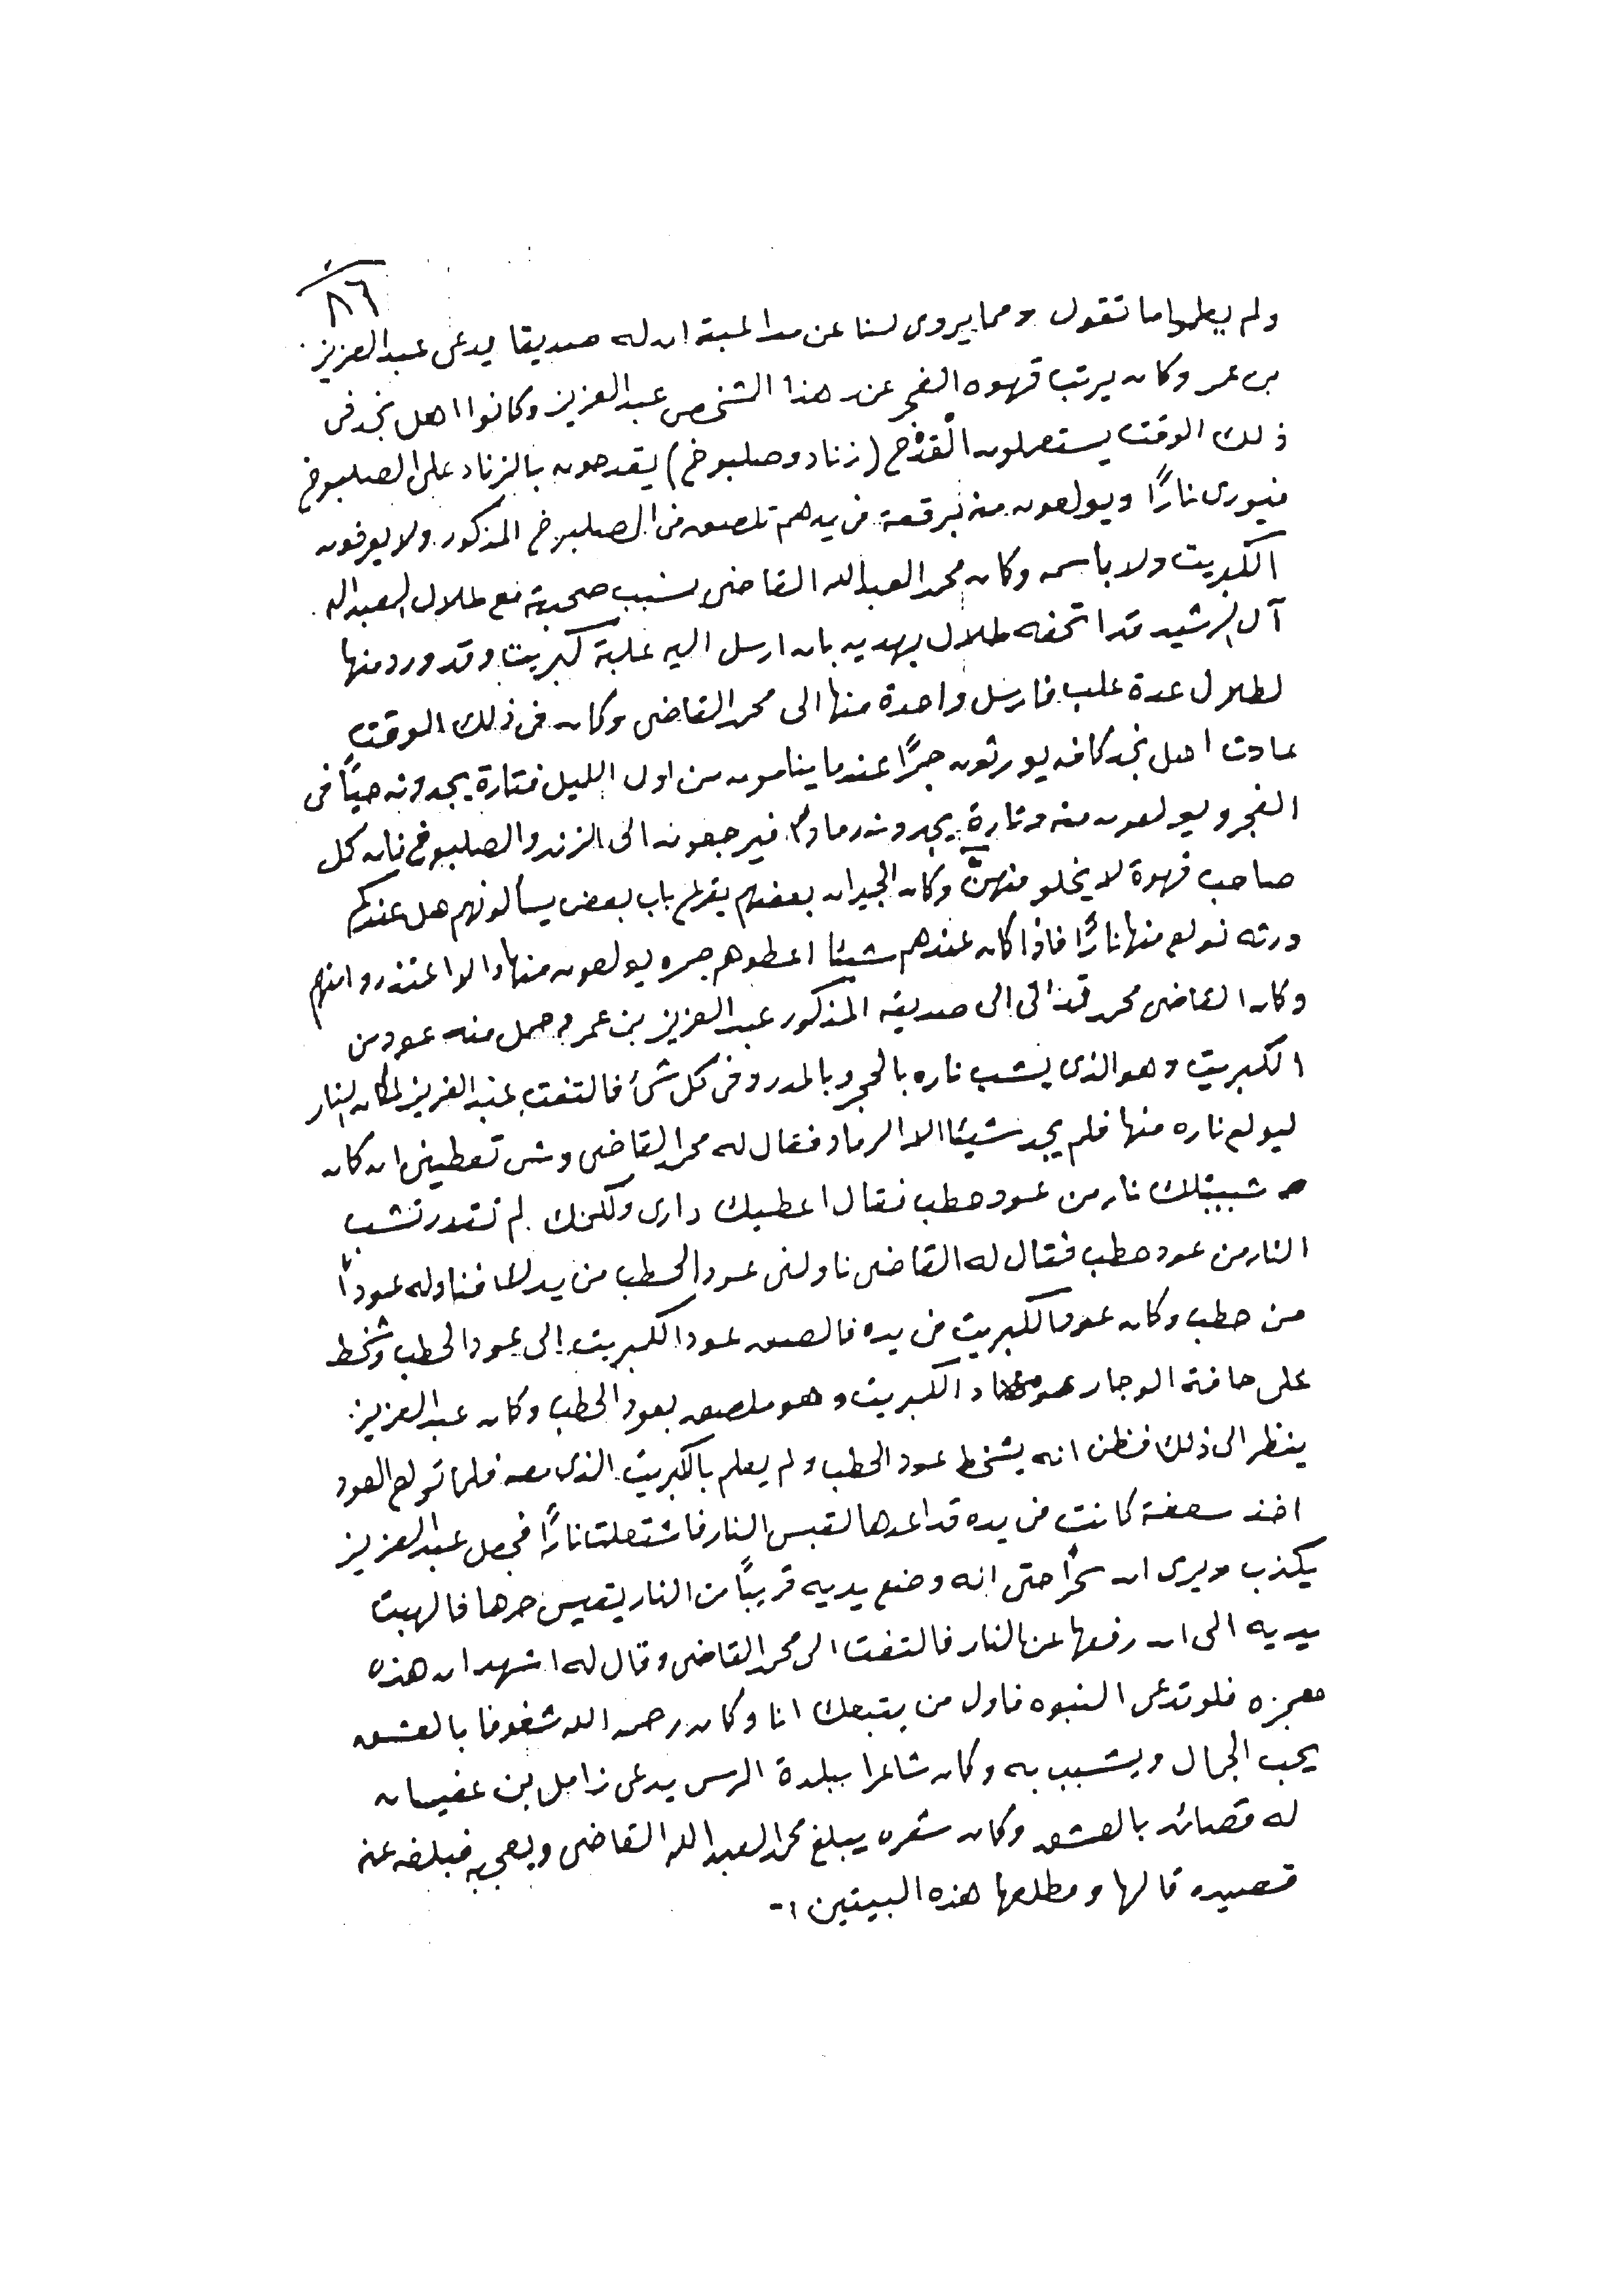 ٨٦
ولم يعلموا ما تقول ومما يروى لنا عن مداعبته ان له صديقا يدعى عبدالعزيز
بن عمر وكان يرتب قهوه الفجر عند هذا الشخص عبدالعزيز وكانوا اهل نجد في
ذلك الوقت يستعملون الْقَدْح (زناد وصلبوخ) يقدحون بالزناد على الصلبوخ
فيورى نارًا ويولعون منه برقعة في يدهم تلصق في الصلبوخ المذكور ولا يعرفون
الكبريت ولا باسمه وكان محمد العبدالله القاضي بسبب صحبته مع طلال العبدالله
آل الرشيد قد اتحفه طلال بهديه بان ارسل اليه علبة كبريت وقد ورد منها
لطلال عدة علب فارسل واحدة منها الى محمد القاضي وكان في ذلك الوقت
عادت اهل نجد كافه يورثون جمرًا عندما ينامون من اول الليل فتارة يجدونه حيًا في
الفجر ويولعون منه وتارة يجدونه رمادًا فيرجعون الى الزند والصلبوخ فان كل
صاحب قهوة لا يخلو منهنّ وكان الجيران بعضهم يقرع باب بعض يسألونهم هل عندكم
ورثه نولع منها نارًا فاذا كان عندهم شيئا اعطوهم جمره يولعون منها والا اعتذروا منهم
وكان القاضي محمد قد اتى الى صديقه المذكور عبدالعزيز بن عمر وحمل منه عود من
الكبريت وهو الذي يشب ناره بالحجر وبالمدر وفي كل شئ فالتفت عبدالعزيز لمكان النار
ليولع ناره منها فلم يجد شيئا الا الرماد فقال له محمد القاضي وش تعطيني ان كان
شبيتلك نار من عود حطب فقال اعطيك داري ولكنك لم تقدر تشب
النار من عود حطب فقال له القاضي ناولني عود الحطب من يدك فناوله عودًا
من حطب وكان عود الكبريت في يده فالصق عود الكبريت الى عود الحطب وشخط
على حافة الوجار عود الكبريت وهو ملصق بعود الحطب وكان عبدالعزيز
ينظر الى ذلك فظن انه يشخط عود الحطب ولم يعلم بالكبريت الذي معه فلما تولع العود
اخذ سعفة كانت في يده قد اعدها لقبس النار فاشتعلت نارًا فجعل عبدالعزيز
يكذب ويرى ان سحرًا حتى انه وضع يديه قريبًا من النار يقيس حرها فالهبت
يديه الى ان رفعها عن النار فالتفت الى محمد القاضي وقال له اشهد ان هذه
معجزه فلو تدعى النبوه فاول من يتبعك انا وكان رحمه الله شغوفا بالعشق
يحب الجمال ويشبب به وكان شاعرا ببلدة الرس يدعى زامل بن عفيسان
له قصائد بالعشق وكان شعره يبلغ محمد العبدالله القاضي ويعجبه فبلغه عنه
قصيده قالها ومطلعها هذه البيتين :-